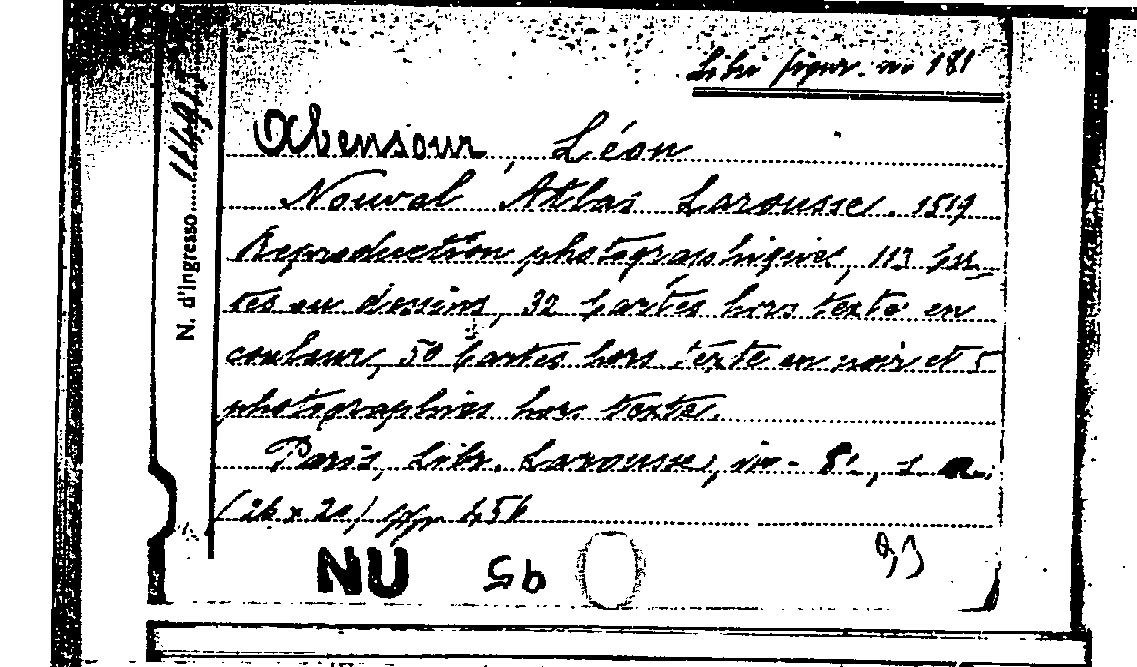 Libri figur. no 181
N. d'Ingresso
Abensour, Léon
Nouval Atlas Larousse. 1519
Reproduction photographiques, 113 Gu
tes ou dessins, 32 Cartes hors texte en
couleur, 50 Cartes hors texte en noir et 5
photographies hors texte.
Paris, Libr. Larousse, in-8º, s a.
(26 x 20) pp 456
NU 5b
93